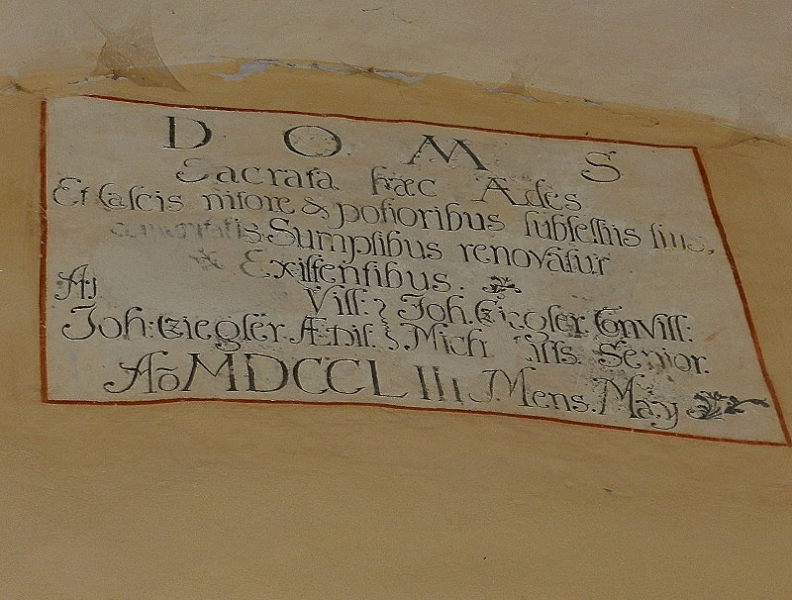 D. O. M. S
Sacrata hæc Ædes
Et Calcis nitore & potioribus subselliis suis,
Sumptibus renovatur
Existentibus.
Vill: Joh. Ziegler Convill:
Joh: Ziegler. Ædil: Mich Senior.
Aõ MDCCLIII Mens. Maÿ